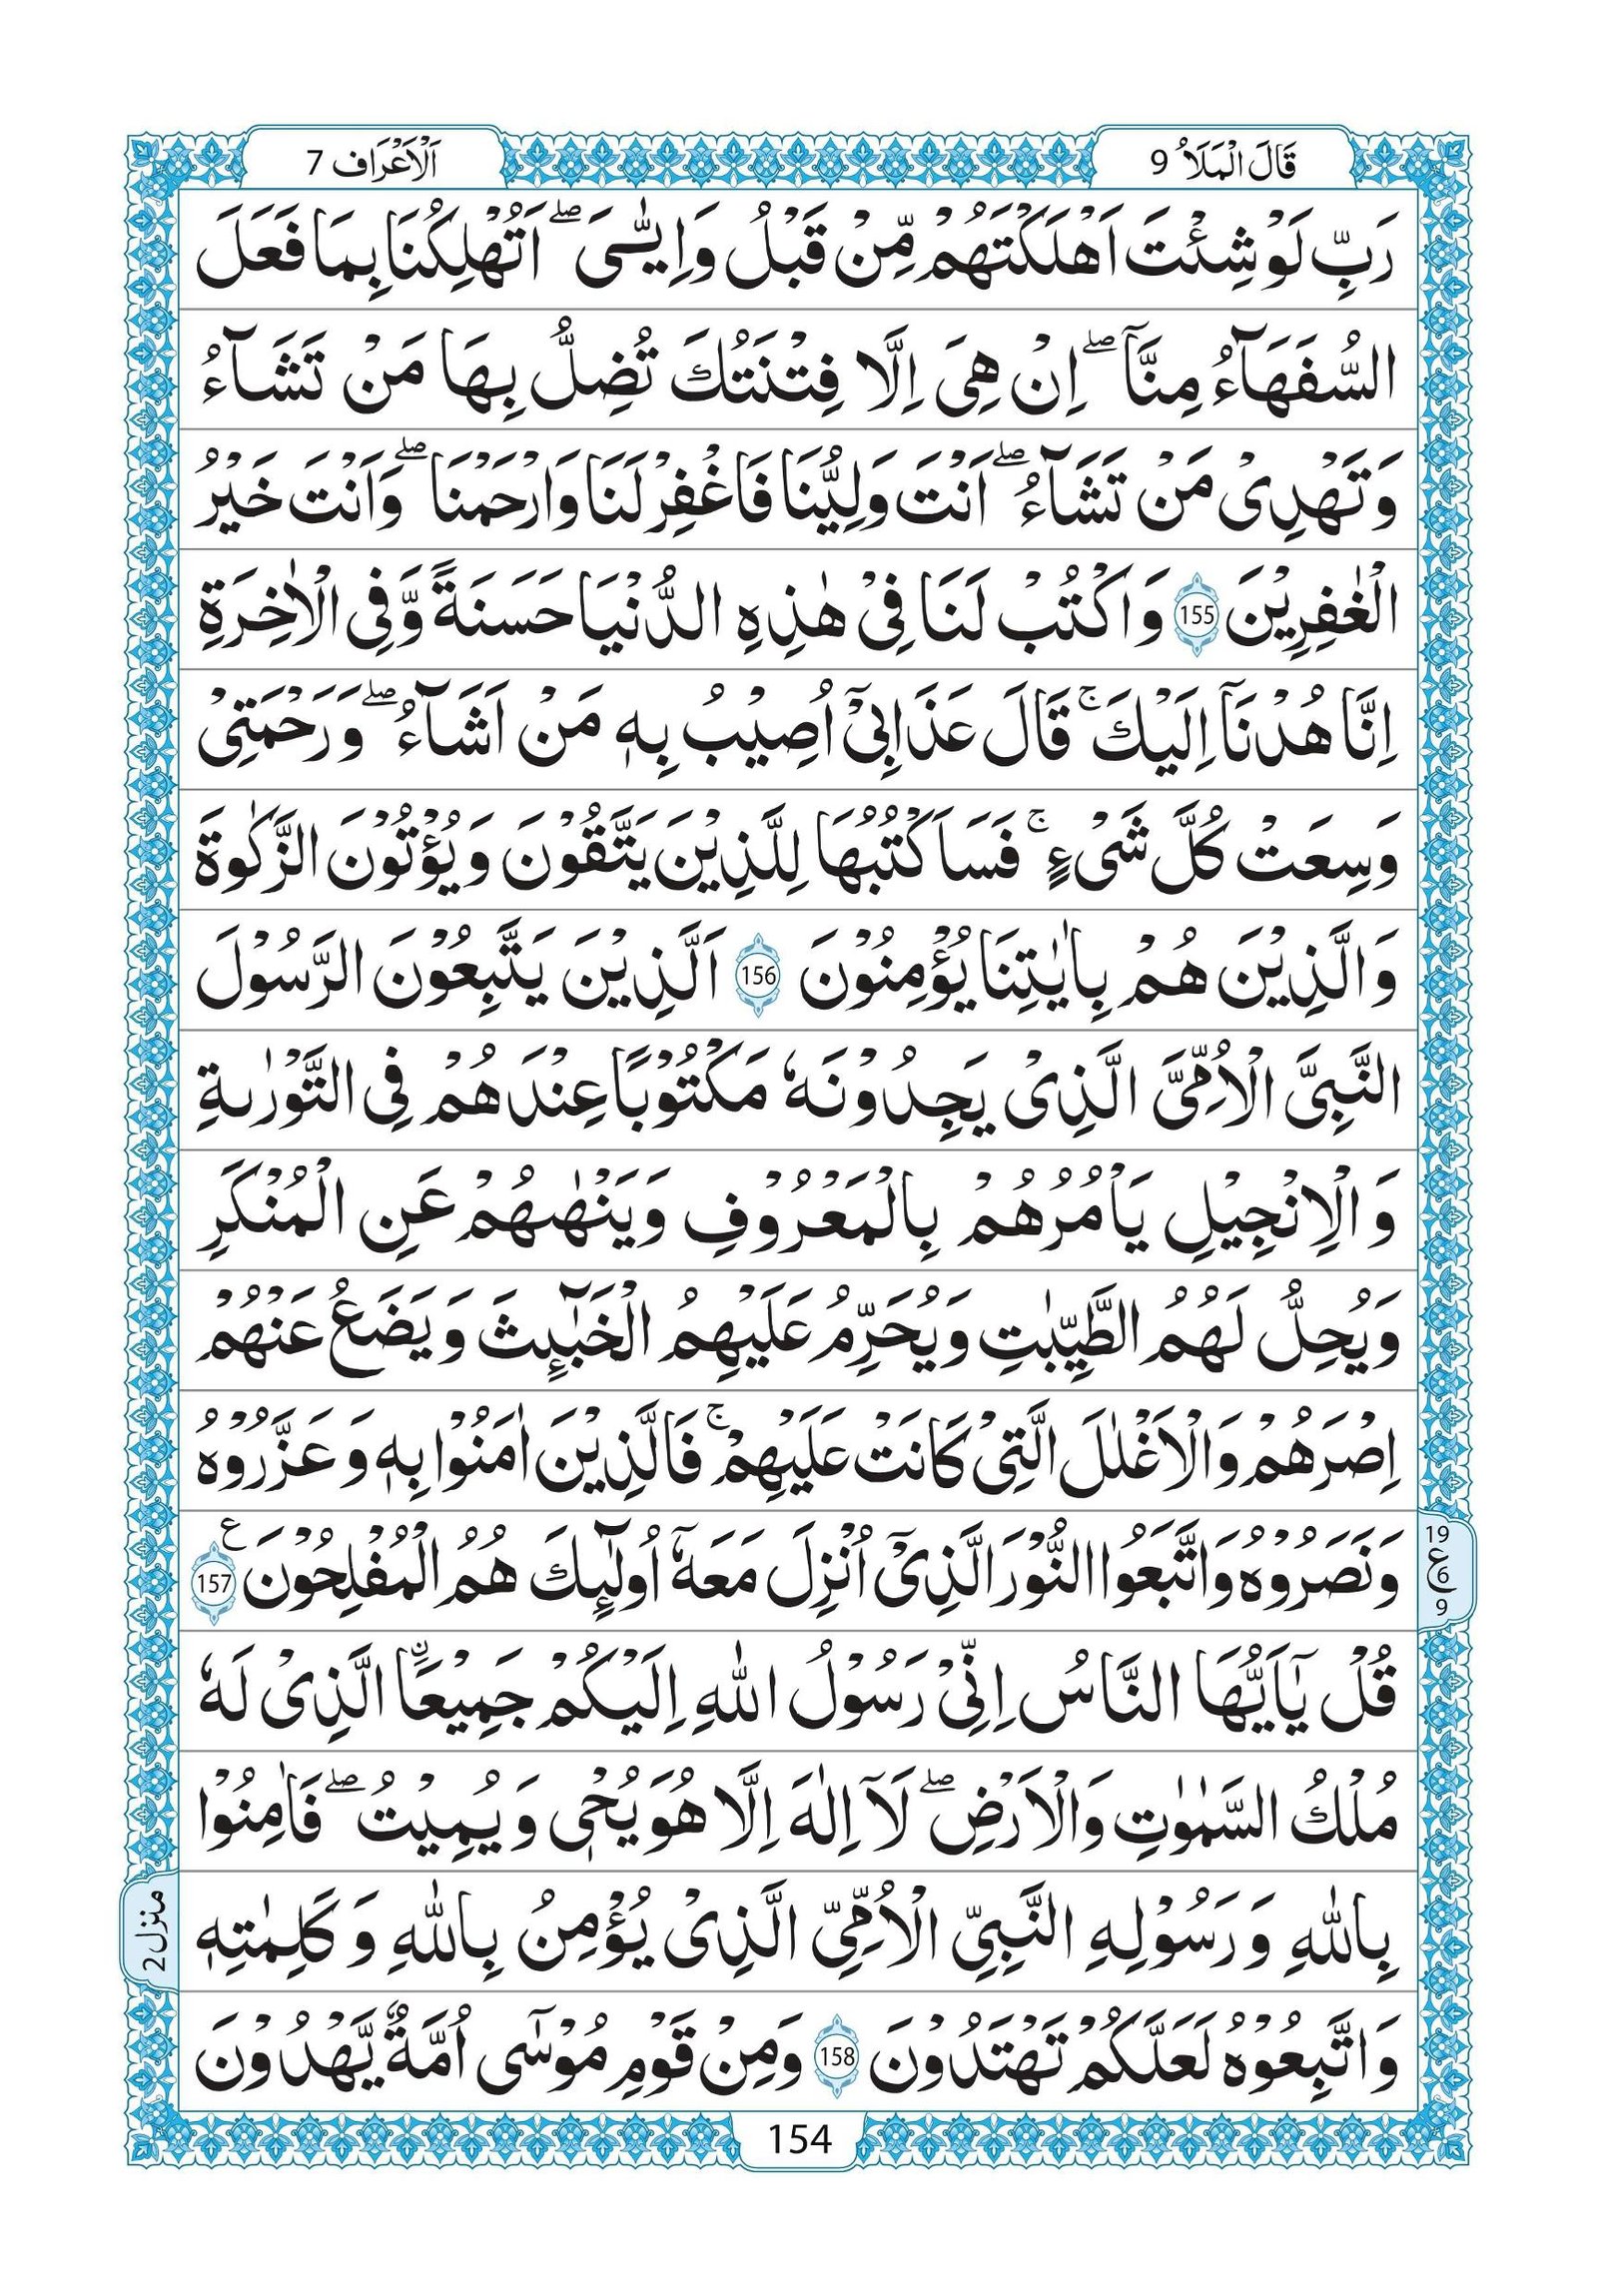 قَالَ الْمَلَاُ 9
اَلْاَعْرَاف 7
رَبِّ لَوْ شِئْتَ اَهْلَكْتَهُمْ مِّنْ قَبْلُ وَاِيَّاىَ ۖ اَتُهْلِكُنَا بِمَا فَعَلَ
السُّفَهَآءُ مِنَّا ۖ اِنْ هِىَ اِلَّا فِتْنَتُكَ تُضِلُّ بِهَا مَنْ تَشَآءُ
وَتَهْدِىْ مَنْ تَشَآءُ ۖ اَنْتَ وَلِيُّنَا فَاغْفِرْ لَنَا وَارْحَمْنَا ۖ وَاَنْتَ خَيْرُ
الْغٰفِرِيْنَ 155 وَاكْتُبْ لَنَا فِىْ هٰذِهِ الدُّنْيَا حَسَنَةً وَّفِى الْاٰخِرَةِ
اِنَّا هُدْنَآ اِلَيْكَ ۚ قَالَ عَذَابِىْٓ اُصِيْبُ بِهٖ مَنْ اَشَآءُ ۖ وَرَحْمَتِىْ
وَسِعَتْ كُلَّ شَىْءٍ ۚ فَسَاَكْتُبُهَا لِلَّذِيْنَ يَتَّقُوْنَ وَيُؤْتُوْنَ الزَّكٰوةَ
وَالَّذِيْنَ هُمْ بِاٰيٰتِنَا يُؤْمِنُوْنَ 156 اَلَّذِيْنَ يَتَّبِعُوْنَ الرَّسُوْلَ
النَّبِىَّ الْاُمِّىَّ الَّذِىْ يَجِدُوْنَهٗ مَكْتُوْبًا عِنْدَهُمْ فِى التَّوْرٰىةِ
وَالْاِنْجِيْلِ يَاْمُرُهُمْ بِالْمَعْرُوْفِ وَيَنْهٰىهُمْ عَنِ الْمُنْكَرِ
وَيُحِلُّ لَهُمُ الطَّيِّبٰتِ وَيُحَرِّمُ عَلَيْهِمُ الْخَبٰٓئِثَ وَيَضَعُ عَنْهُمْ
اِصْرَهُمْ وَالْاَغْلٰلَ الَّتِىْ كَانَتْ عَلَيْهِمْ ۚ فَالَّذِيْنَ اٰمَنُوْا بِهٖ وَعَزَّرُوْهُ
وَنَصَرُوْهُ وَاتَّبَعُوا النُّوْرَ الَّذِىْٓ اُنْزِلَ مَعَهٗٓ اُولٰٓئِكَ هُمُ الْمُفْلِحُوْنَ ع 157
19
ع 6
9
قُلْ يٰٓاَيُّهَا النَّاسُ اِنِّىْ رَسُوْلُ اللّٰهِ اِلَيْكُمْ جَمِيْعَاۨ الَّذِىْ لَهٗ
مُلْكُ السَّمٰوٰتِ وَالْاَرْضِ ۖ لَآ اِلٰهَ اِلَّا هُوَ يُحْىٖ وَيُمِيْتُ ۖ فَاٰمِنُوْا
بِاللّٰهِ وَرَسُوْلِهِ النَّبِىِّ الْاُمِّىِّ الَّذِىْ يُؤْمِنُ بِاللّٰهِ وَكَلِمٰتِهٖ
منزل 2
وَاتَّبِعُوْهُ لَعَلَّكُمْ تَهْتَدُوْنَ 158 وَمِنْ قَوْمِ مُوْسٰٓى اُمَّةٌ يَّهْدُوْنَ
154